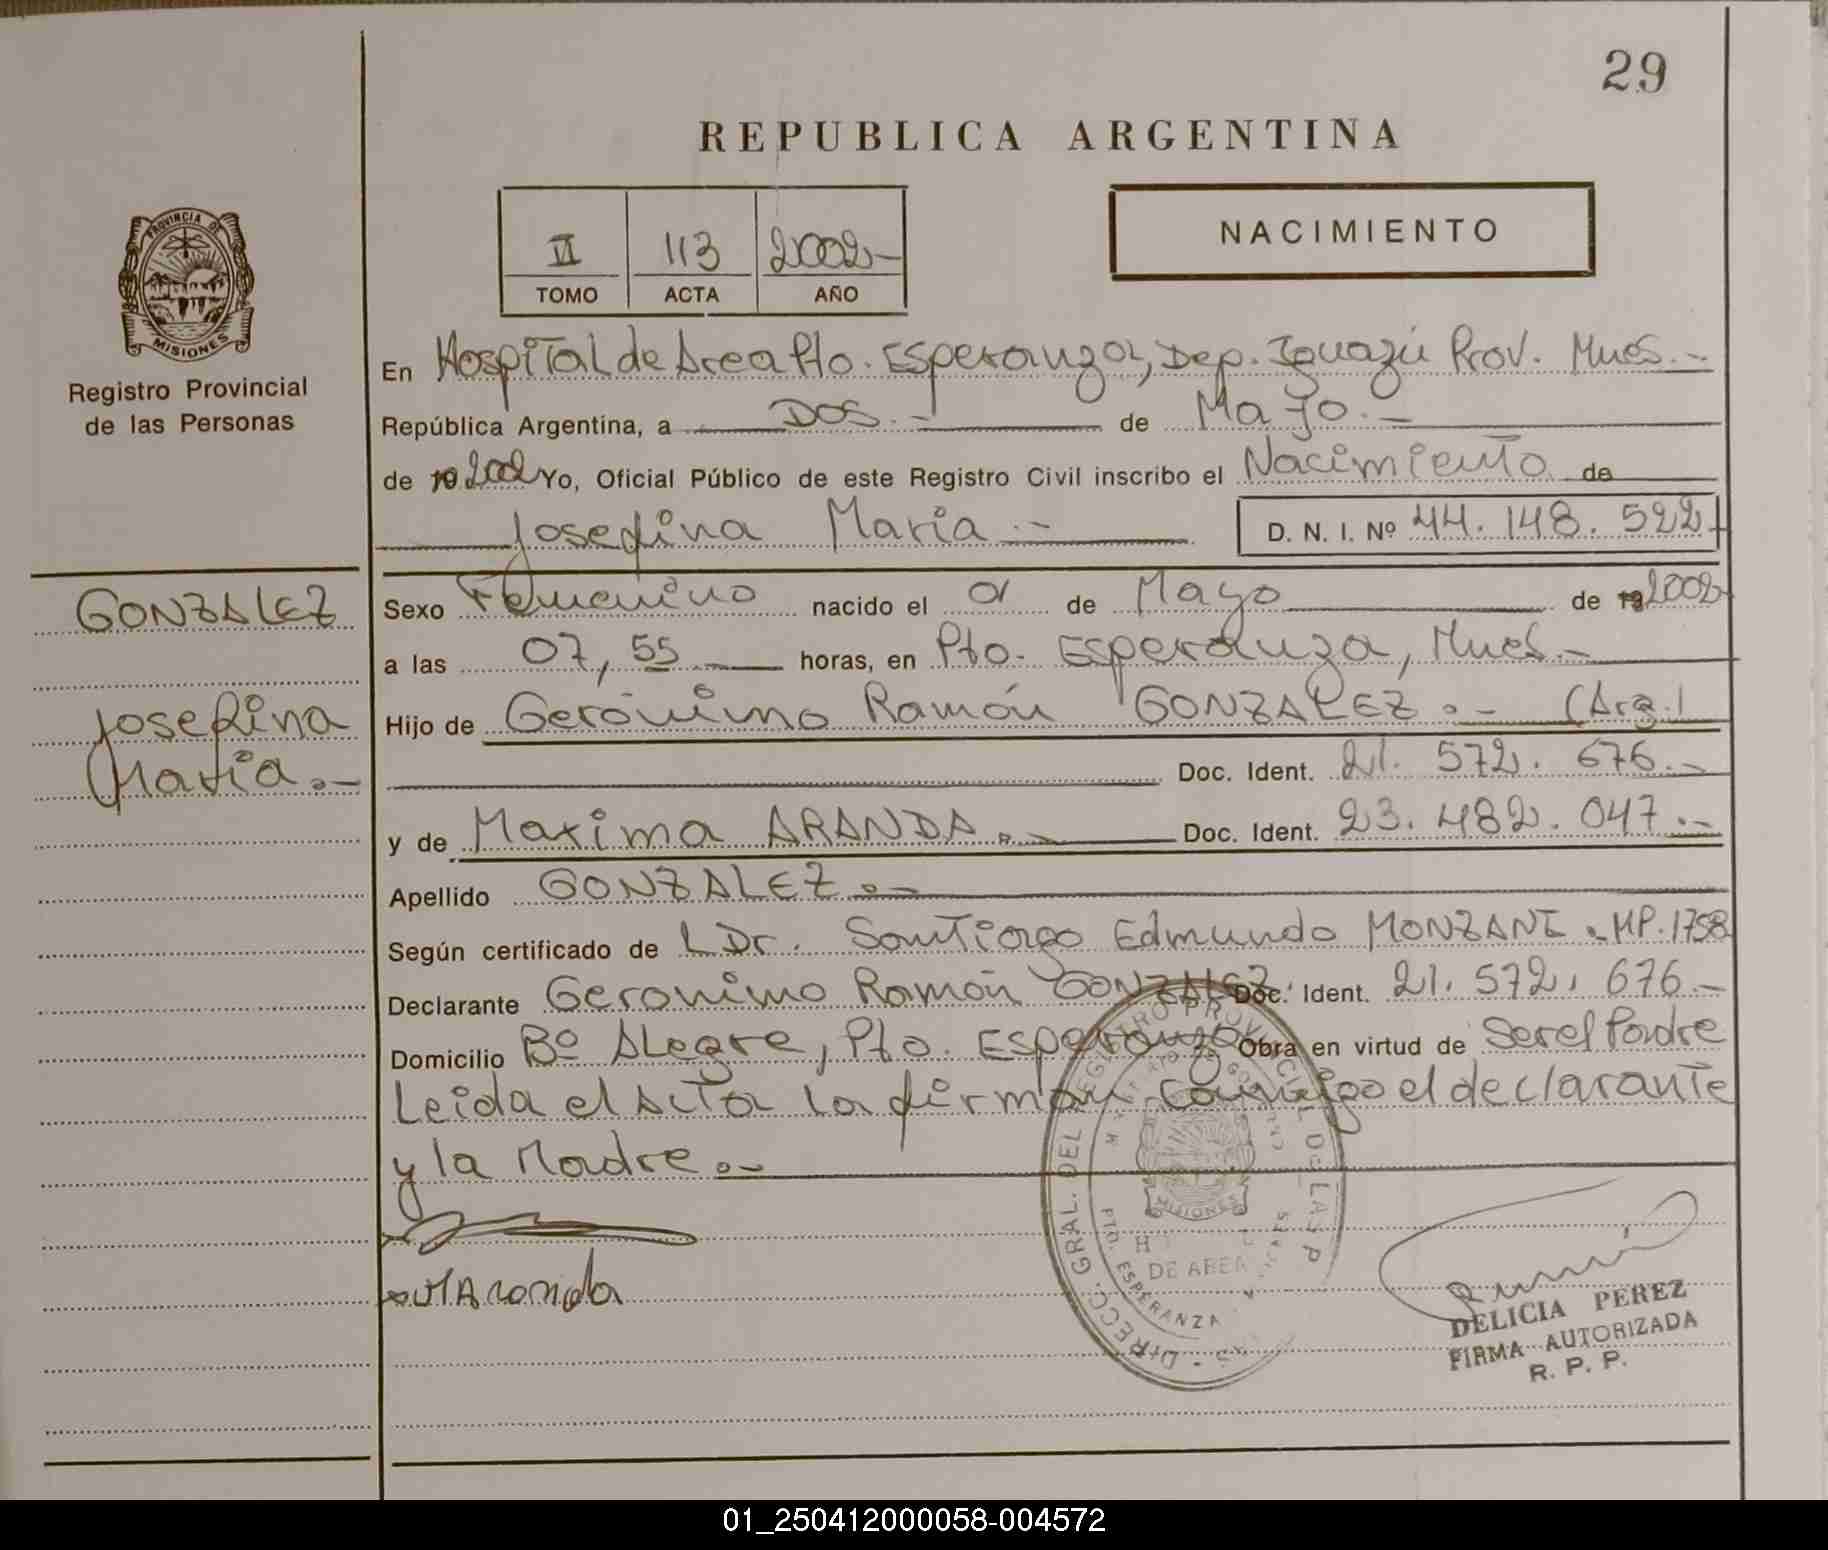 29
REPUBLICA ARGENTINA
II 113 2002-
TOMO ACTA AÑO
NACIMIENTO
PROVINCIA DE
MISIONES
Registro Provincial
de las Personas
En Hospital de Area Pto. Esperanza, Dep. Iguazú Prov. Mnes.-
República Argentina, a DOS.- de Mayo.-
de 19 2002 Yo, Oficial Público de este Registro Civil inscribo el Nacimiento de
Josefina Maria.- D. N. I. Nº 44.148.522
GONZALEZ
Josefina
Maria.-
Sexo Femenino nacido el 01 de Mayo de 19 2002
a las 07,55 horas, en Pto. Esperanza, Mnes.-
Hijo de Gerónimo Ramón GONZALEZ.- (Arg.)
Doc. Ident. 21.572.676.-
y de Maxima ARANDA.- Doc. Ident. 23.482.047.-
Apellido GONZALEZ.-
Según certificado de Dr. Santiago Edmundo MONZANI. MP.1758
Declarante Geronimo Ramón GONZALEZ Doc. Ident. 21.572.676.-
Domicilio Bº Alegre, Pto. Esperanza Obra en virtud de Ser el Padre
Leida el Acta la firman conmigo el declarante
y la Madre.-
M Aranda
DIRECC. GRAL. DEL REGISTRO PROVINCIAL DE LAS P
MISIONES
DE AREA
PTO. ESPERANZA
DELICIA PEREZ
FIRMA AUTORIZADA
R. P. P.
01_250412000058-004572